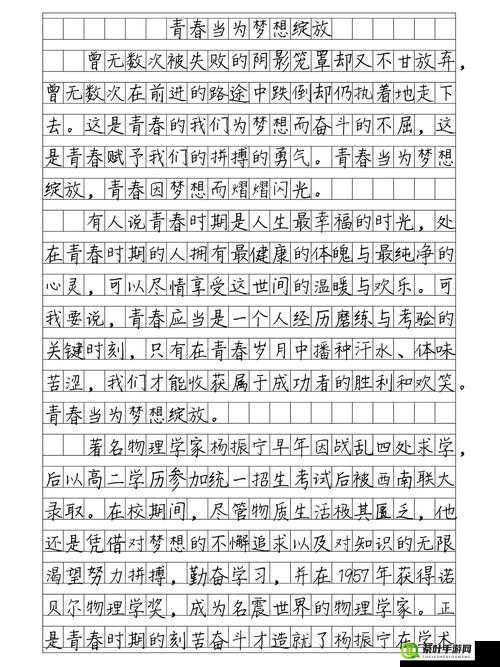 青春当为梦想绽放
曾无数次被失败的阴影笼罩却又不甘放弃，
曾无数次在前进的路途中跌倒却仍执着地走下
去。这是青春的我们为梦想而奋斗的不屈，这
是青春赋予我们的拼搏的勇气。青春当为梦想
绽放，青春因梦想而熠熠闪光。
有人说青春时期是人生最幸福的时光，处
在青春时期的人拥有最健康的体魄与最纯净的
心灵，可以尽情享受这世间的温暖与欢乐。可
我要说，青春应当是一个人经历磨练与考验的
关键时刻，只有在青春岁月中播种汗水、体味
苦涩，我们才能收获属于成功者的胜利和欢笑。
青春当为梦想绽放。
著名物理学家杨振宁早年因战乱四处求学，
后以高二学历参加统一招生考试后被西南联大
录取。在校期间，尽管物质生活极其匮乏，他
还是凭借对梦想的不懈追求以及对知识的无限
渴望努力拼搏，勤奋学习，并在1957年获得诺
贝尔物理学奖，成为名震世界的物理学家。正
是青春时期的刻苦奋斗才造就了杨振宁在学术
茶叶手游网